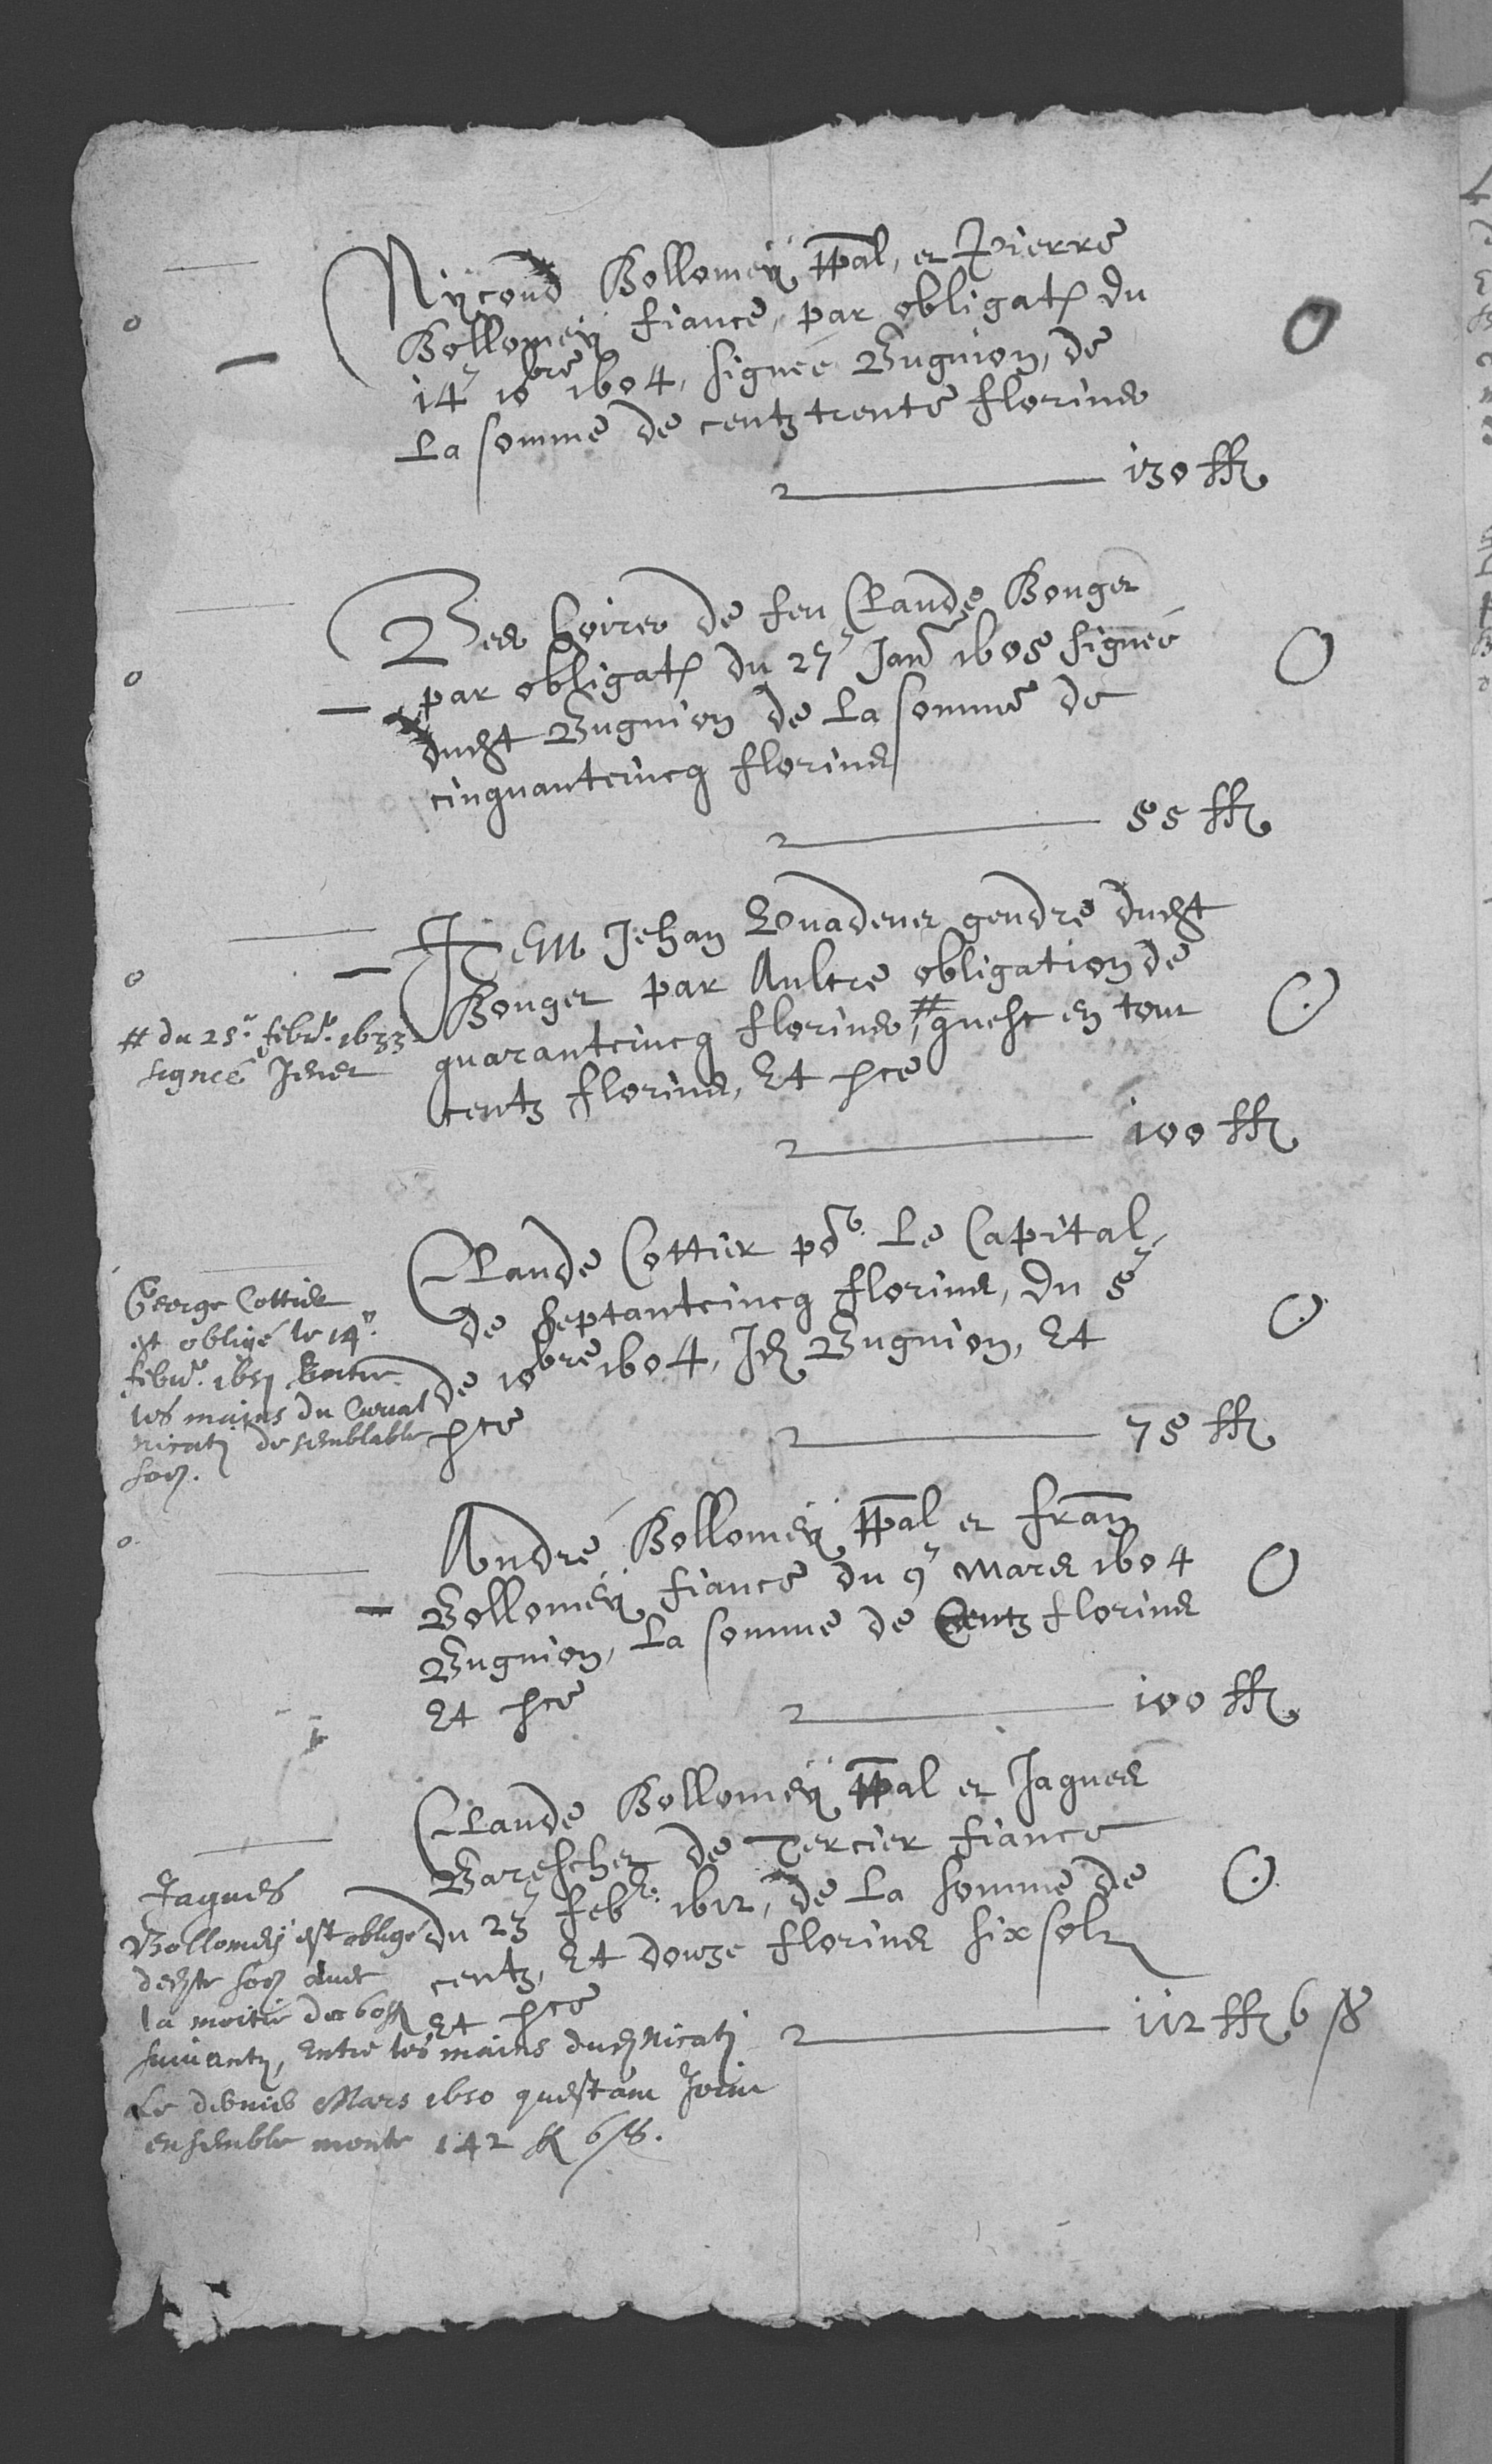 Nycond Bollomey ppal, et Pierre
Bollomey fiance, par obligat du
14 10bre 1604, signee Bugnion, de
La somme de centz trente florins
130 ff
Les hoires de feu Claude Bonget
par obligat du 27 Jan 1605 signee
dudit Bugnion de La somme de
cinquantecincq florins
55 ff
Item Jehan gendre dudit
Bonget par Aultre obligation de
quarantecincq florins, # quest en tout
centz florins, Et sce
# du 25 feb. 1633
signee Jenet
100 ff
Claude Cottier po. Le Capital
de septantecincq florins, du 5
de 10bre 1604, Bugnion, Et
sce
75 ff
George Cottier
est obligé le 14
feb. 1651 Entre
les mains du Curial
Nicati de semblable
som.
André Bollomey ppal et fran
Bollomey fiance du 9 Mars 1604
Bugnion, La somme de Centz florins
Et sce
100 ff
Claude Bollomey ppal et Jaques
Bareschet de Tercier fiance
du 23 feb. 1612, de La somme de
centz, Et douze florins six solz
Et sce
112 ff 6 s
Jaques
Bollomey est obligé
deste som avec
la moitié des 60 ff
suivantz, Entre les mains dud Nicati
Le dernier Mars 1650 questam Joint
ensemble monte 142 ff 6 s.